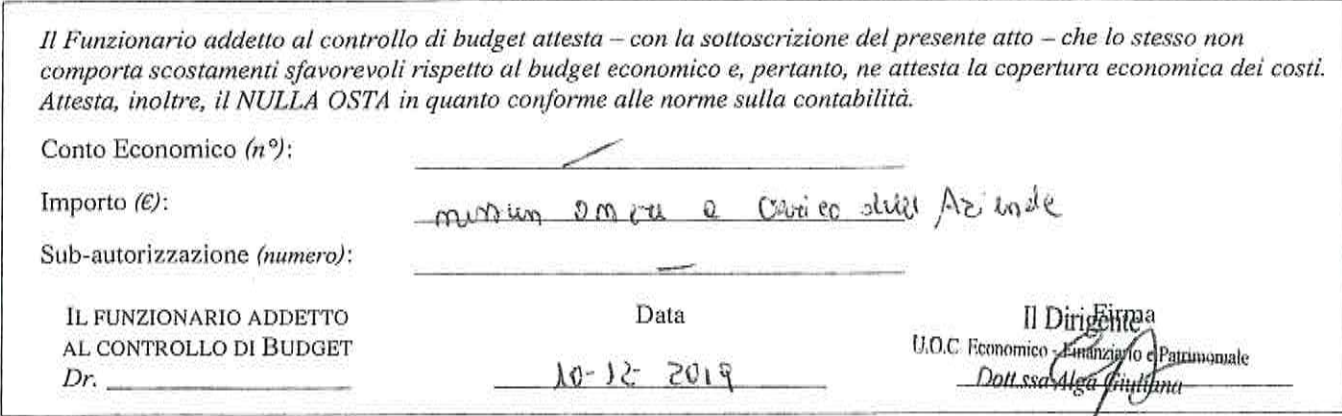 Il Funzionario addetto al controllo di budget attesta – con la sottoscrizione del presente atto – che lo stesso non
comporta scostamenti sfavorevoli rispetto al budget economico e, pertanto, ne attesta la copertura economica dei costi.
Attesta, inoltre, il NULLA OSTA in quanto conforme alle norme sulla contabilità.
Conto Economico (n°): /
Importo (€): nessun onere a carico dell'Azienda
Sub-autorizzazione (numero): –
IL FUNZIONARIO ADDETTO
AL CONTROLLO DI BUDGET
Dr.
Data
10-12-2019
Firma
Il Dirigente
U.O.C. Economico - Finanziario e Patrimoniale
Dott.ssa Alga Giuliana